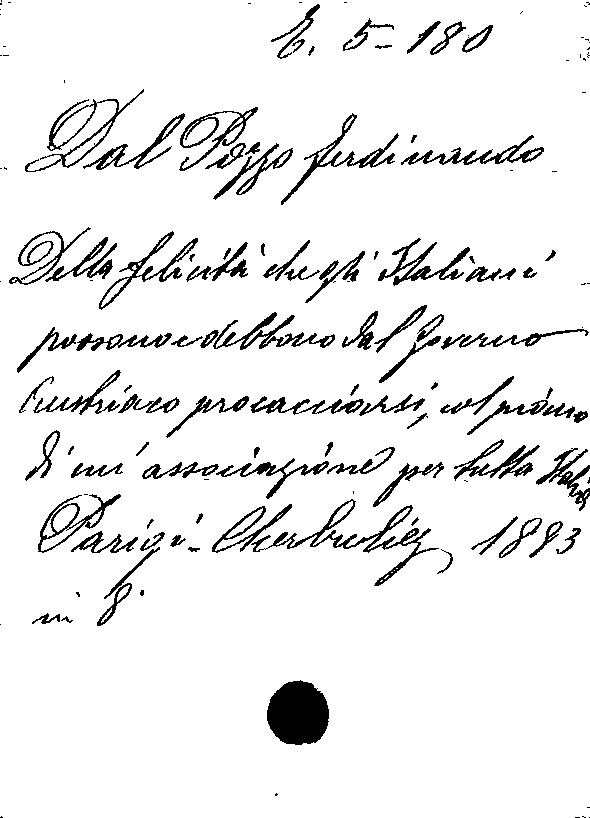 E. 5-180
Dal Pozzo Ferdinando
Della felicità che gli Italiani
possono e debbono dal Governo
Austriaco procacciarsi, col piano
di un' associazione per tutta Italia
Parigi - Cherbuliez, 1893
in 8°